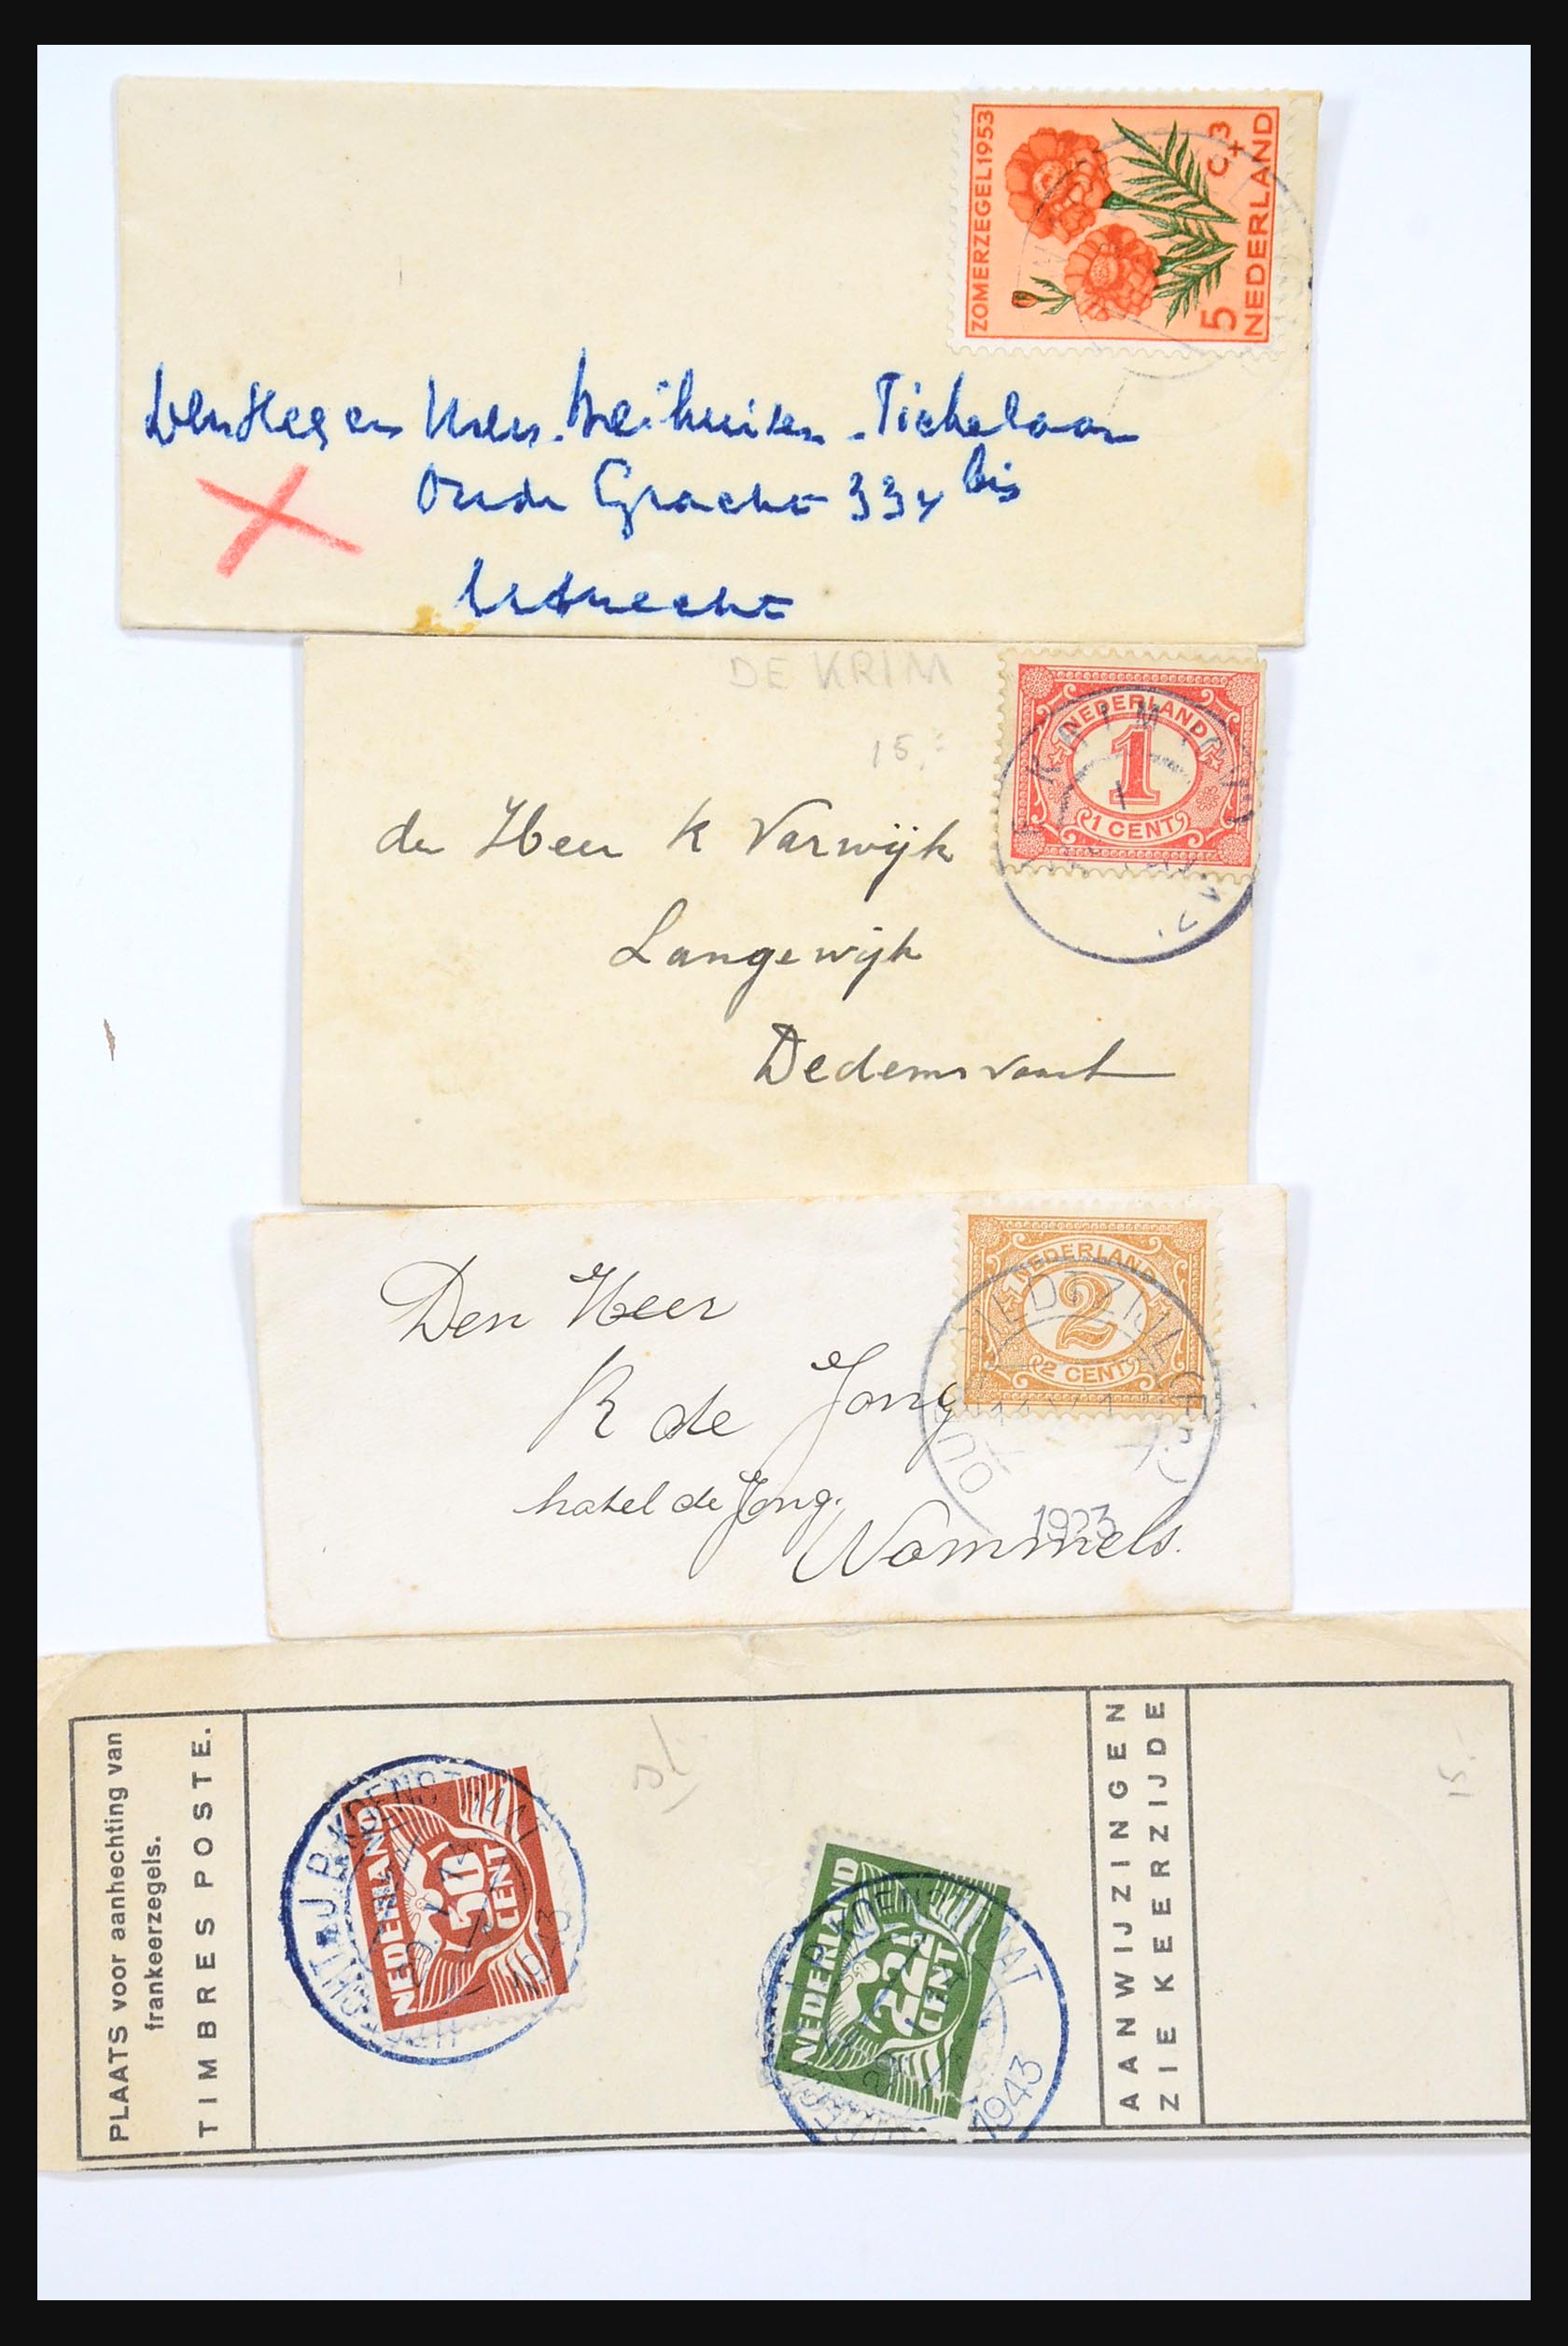 ZOMERZEGEL 1953
5 c + 3
NEDERLAND
Den Heer en Mevr. Meihuizen - Tichelaar
Oude Gracht 33 bis
Utrecht
DE KRIM
15,-
NEDERLAND
1
1 CENT
KRIM
de Heer K Varwijk
Langewijk
Dedemsvaart
NEDERLAND
2
2 CENT
1923
Den Heer
R de Jong
hotel de Jong.
Wommels.
PLAATS voor aanhechting van
frankeerzegels.
TIMBRES POSTE.
NEDERLAND
50
CENT
J.P. KOENSTRAAT
1943
NEDERLAND
22½
CENT
J.P. KOENSTRAAT
1943
AANWIJZINGEN
ZIE KEERZIJDE
15.-